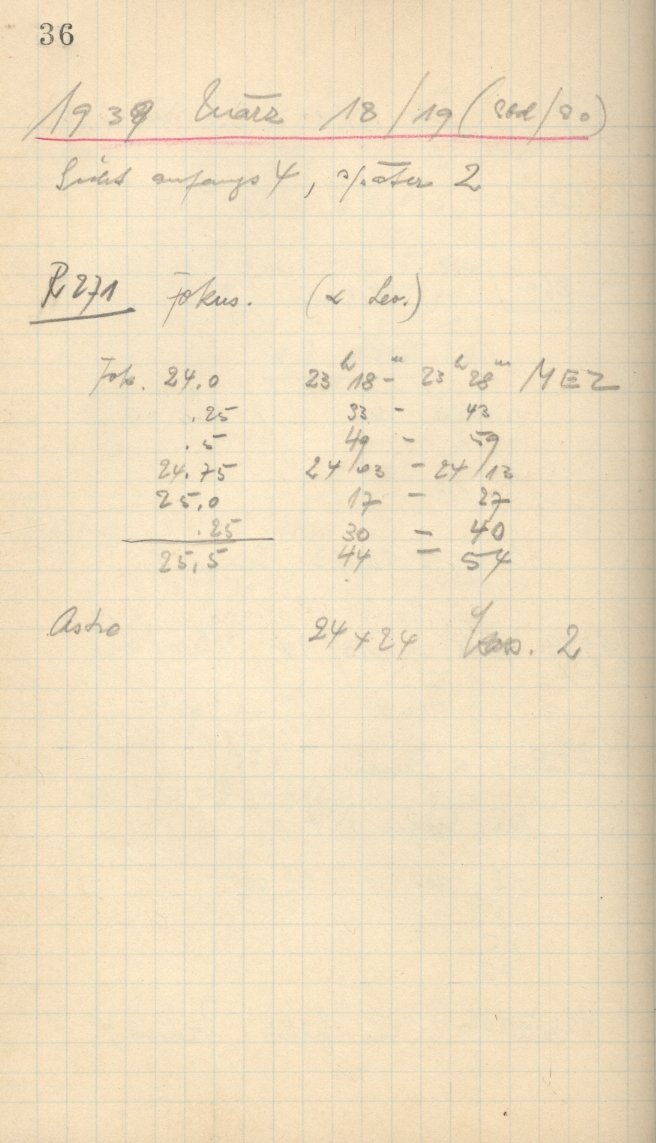 36
1939 März 18/19 (
Sicht anfangs 4, später 2
R 271 Fokus. (α Leo.)
Fok. 24.0 23ʰ18 – 23ʰ28ᵐ MEZ
.25 33 – 43
.5 49 – 59
24.75 24/03 – 24/13
25.0 17 – 27
.25 30 – 40
25,5 44 – 54
Astro 24 x 24 2